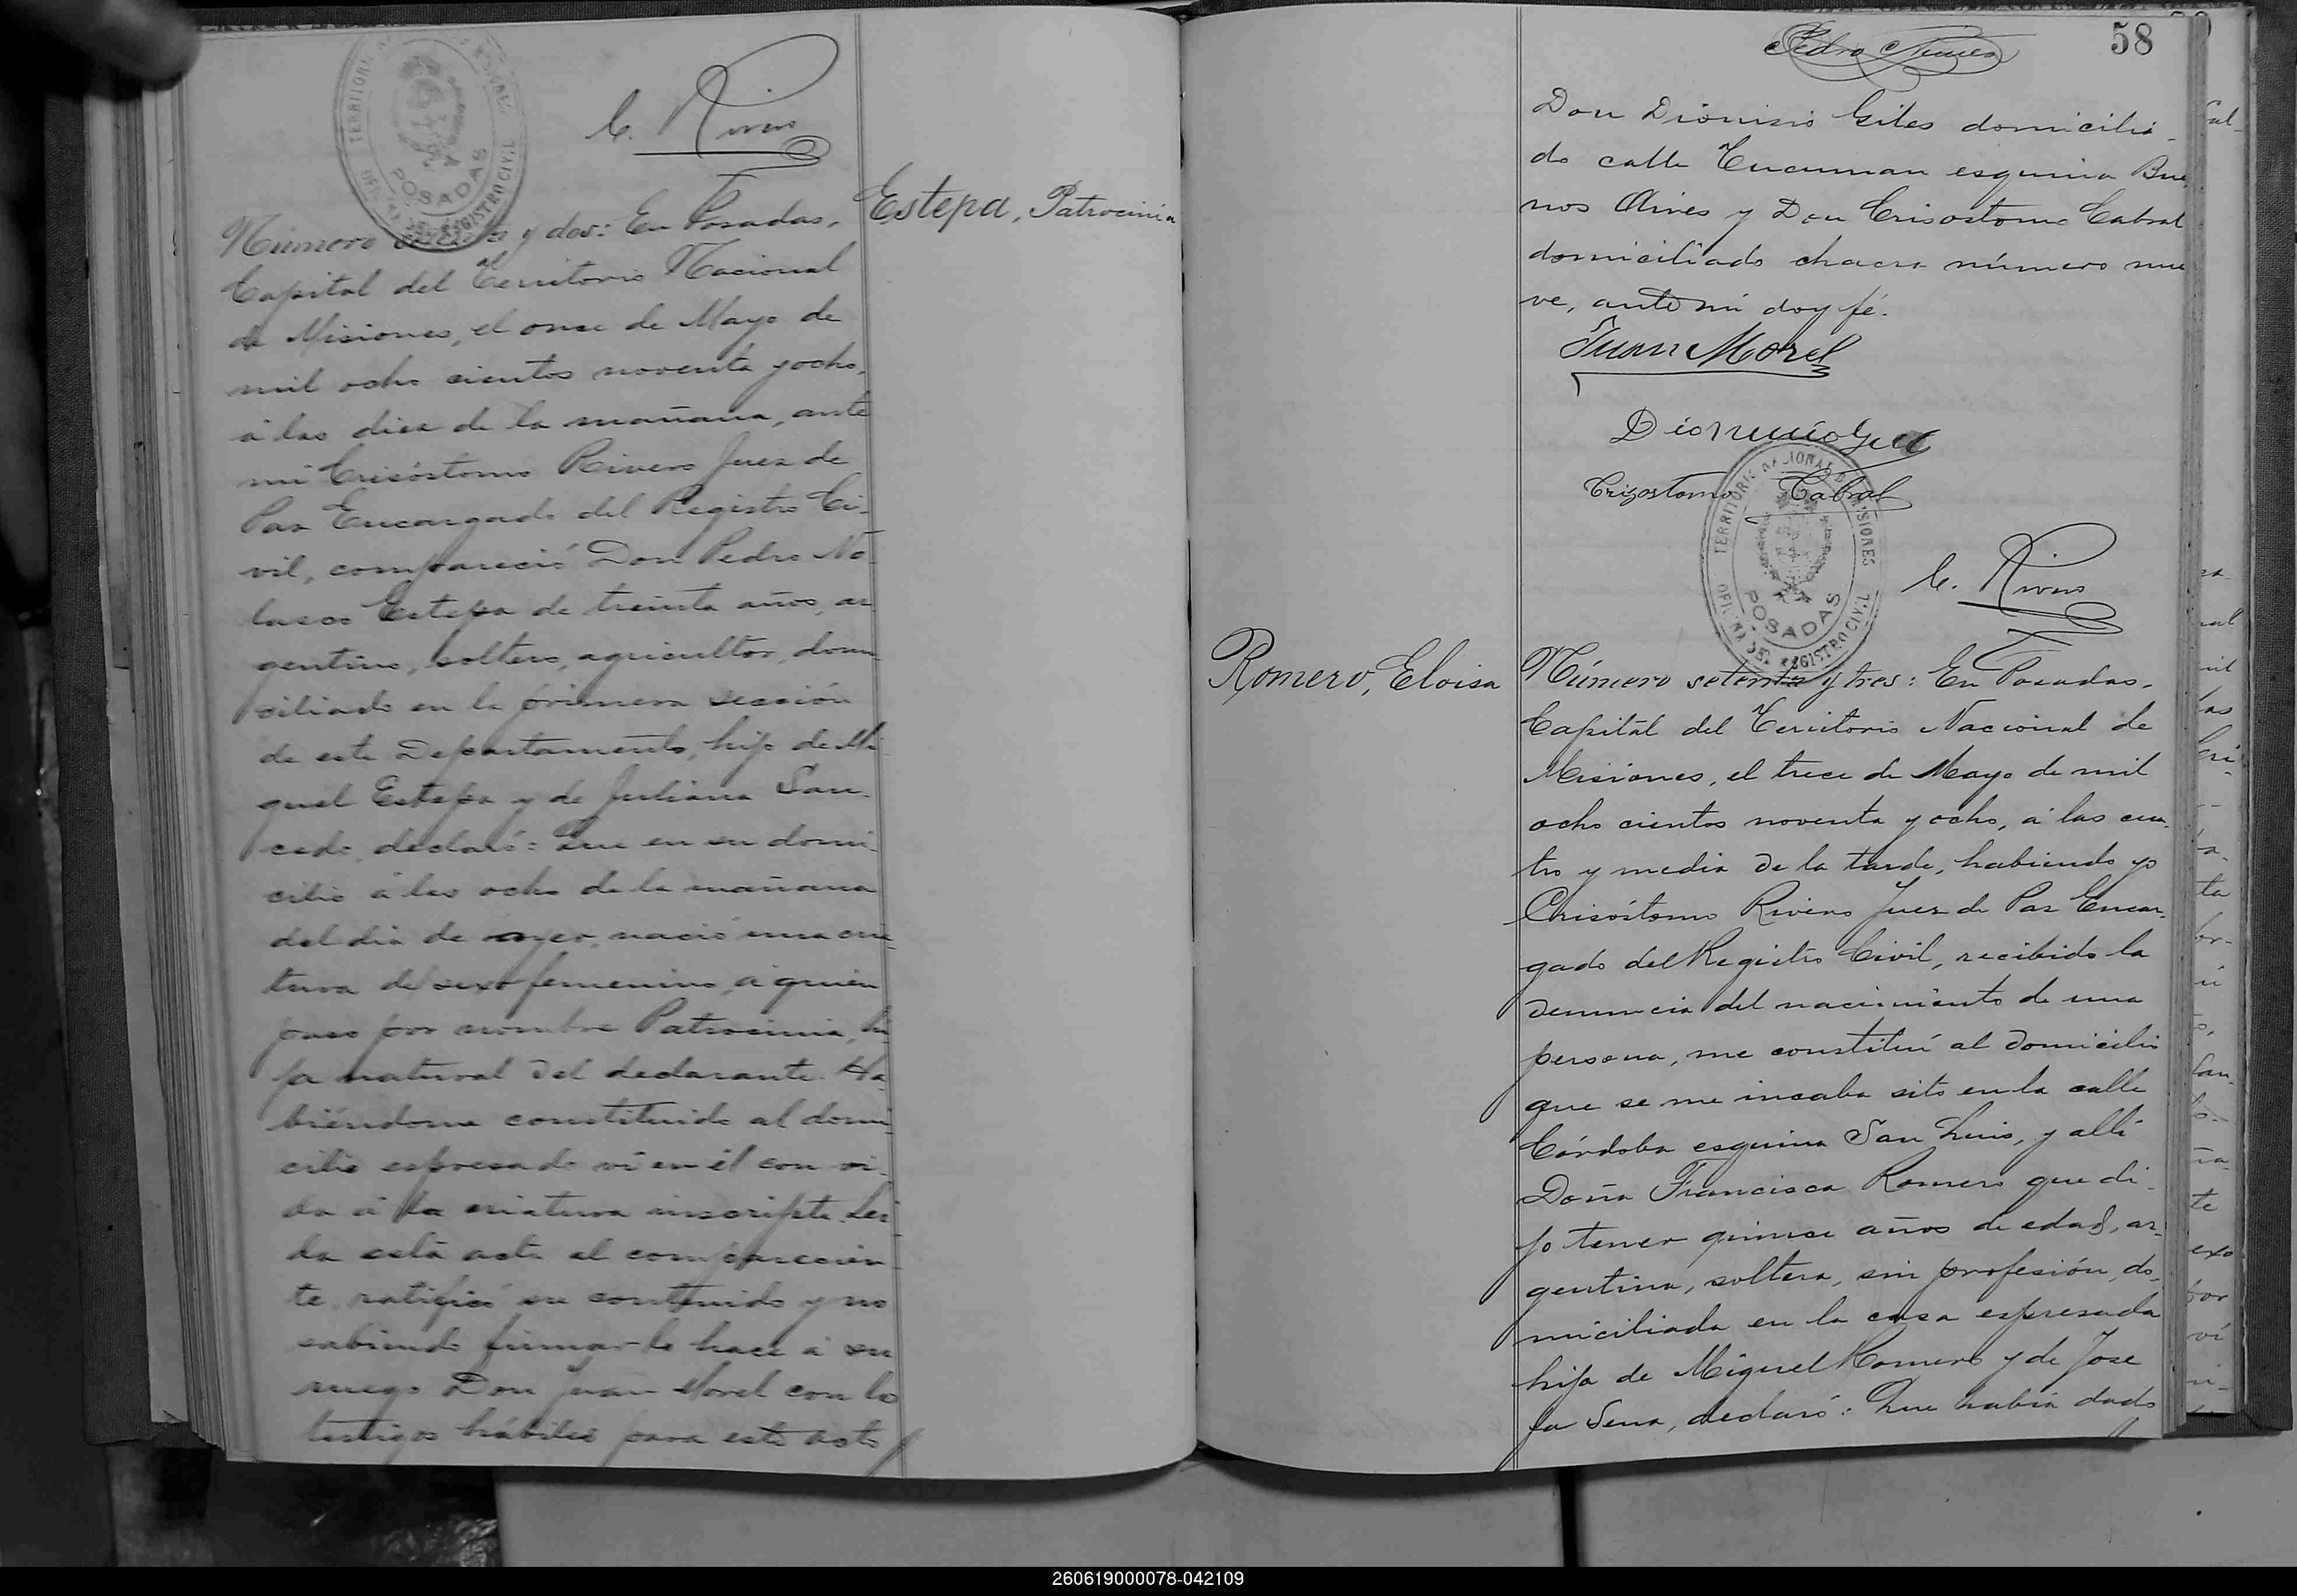 C. Rivero
TERRITORIO
POSADAS
REGISTRO CIVIL
Estepa, Patrocinia
Número y dos: En Posadas,
Capital del Territorio Nacional
de Misiones, el once de Mayo de
mil ocho cientos noventa y ocho,
á las diez de la mañana, ante
mi Crisóstomo Rivero Juez de
Paz Encargado del Registro Ci-
vil, compareció Don Pedro No-
lasco Estepa de treinta años, ar
gentino, soltero, agricultor, domi-
ciliado en la primera sección
de este Departamento, hijo de Mi
guel Estepa y de Juliana Sau-
cedo, declaró: Que en su domi
cilio á las ocho de la mañana
del dia de ayer, nació una cria
tura del sexo femenino, á quien
puso por nombre Patrocinia, hi
ja natural del declarante. Ha
biéndome constituido al domi
cilio espresado ví en él con vi-
da á la criatura inscripta. Lei
da esta acta el comparecien
te, ratificó su contenido y no
sabiendo firmar lo hace á su
ruego Don Juan Morel con los
testigos hábiles para este acto
58
Pedro Nunez
Don Dionisio Giles domicilia-
do calle Tucuman esquina Bue
nos Aires y Don Crisostomo Cabral
domiciliado chacra número nue
ve, ante mi doy fé.
Juan Morel
Dionicio
Crizostomo Cabral
TERRITORIO NACIONAL DE MISIONES
POSADAS
OFICINA DEL REGISTRO CIVIL
C. Rivero
Romero, Eloisa
Número setenta y tres: En Posadas,
Capital del Territorio Nacional de
Misiones, el trece de Mayo de mil
ocho cientos noventa y ocho, á las cua-
tro y media de la tarde, habiendo yo
Crisóstomo Rivero Juez de Paz Encar-
gado del Registro Civil, recibido la
denuncia del nacimiento de una
persona, me constituí al domicilio
que se me incaba sito en la calle
Córdoba esquina San Luis, y allí
Doña Francisca Romero que di-
jo tener quince años de edad, ar-
gentina, soltera, sin profesión, do-
miciliada en la casa espresada
hija de Miguel Romero y de Jose
fa Sena, declaró: Que habia dado
260619000078-042109